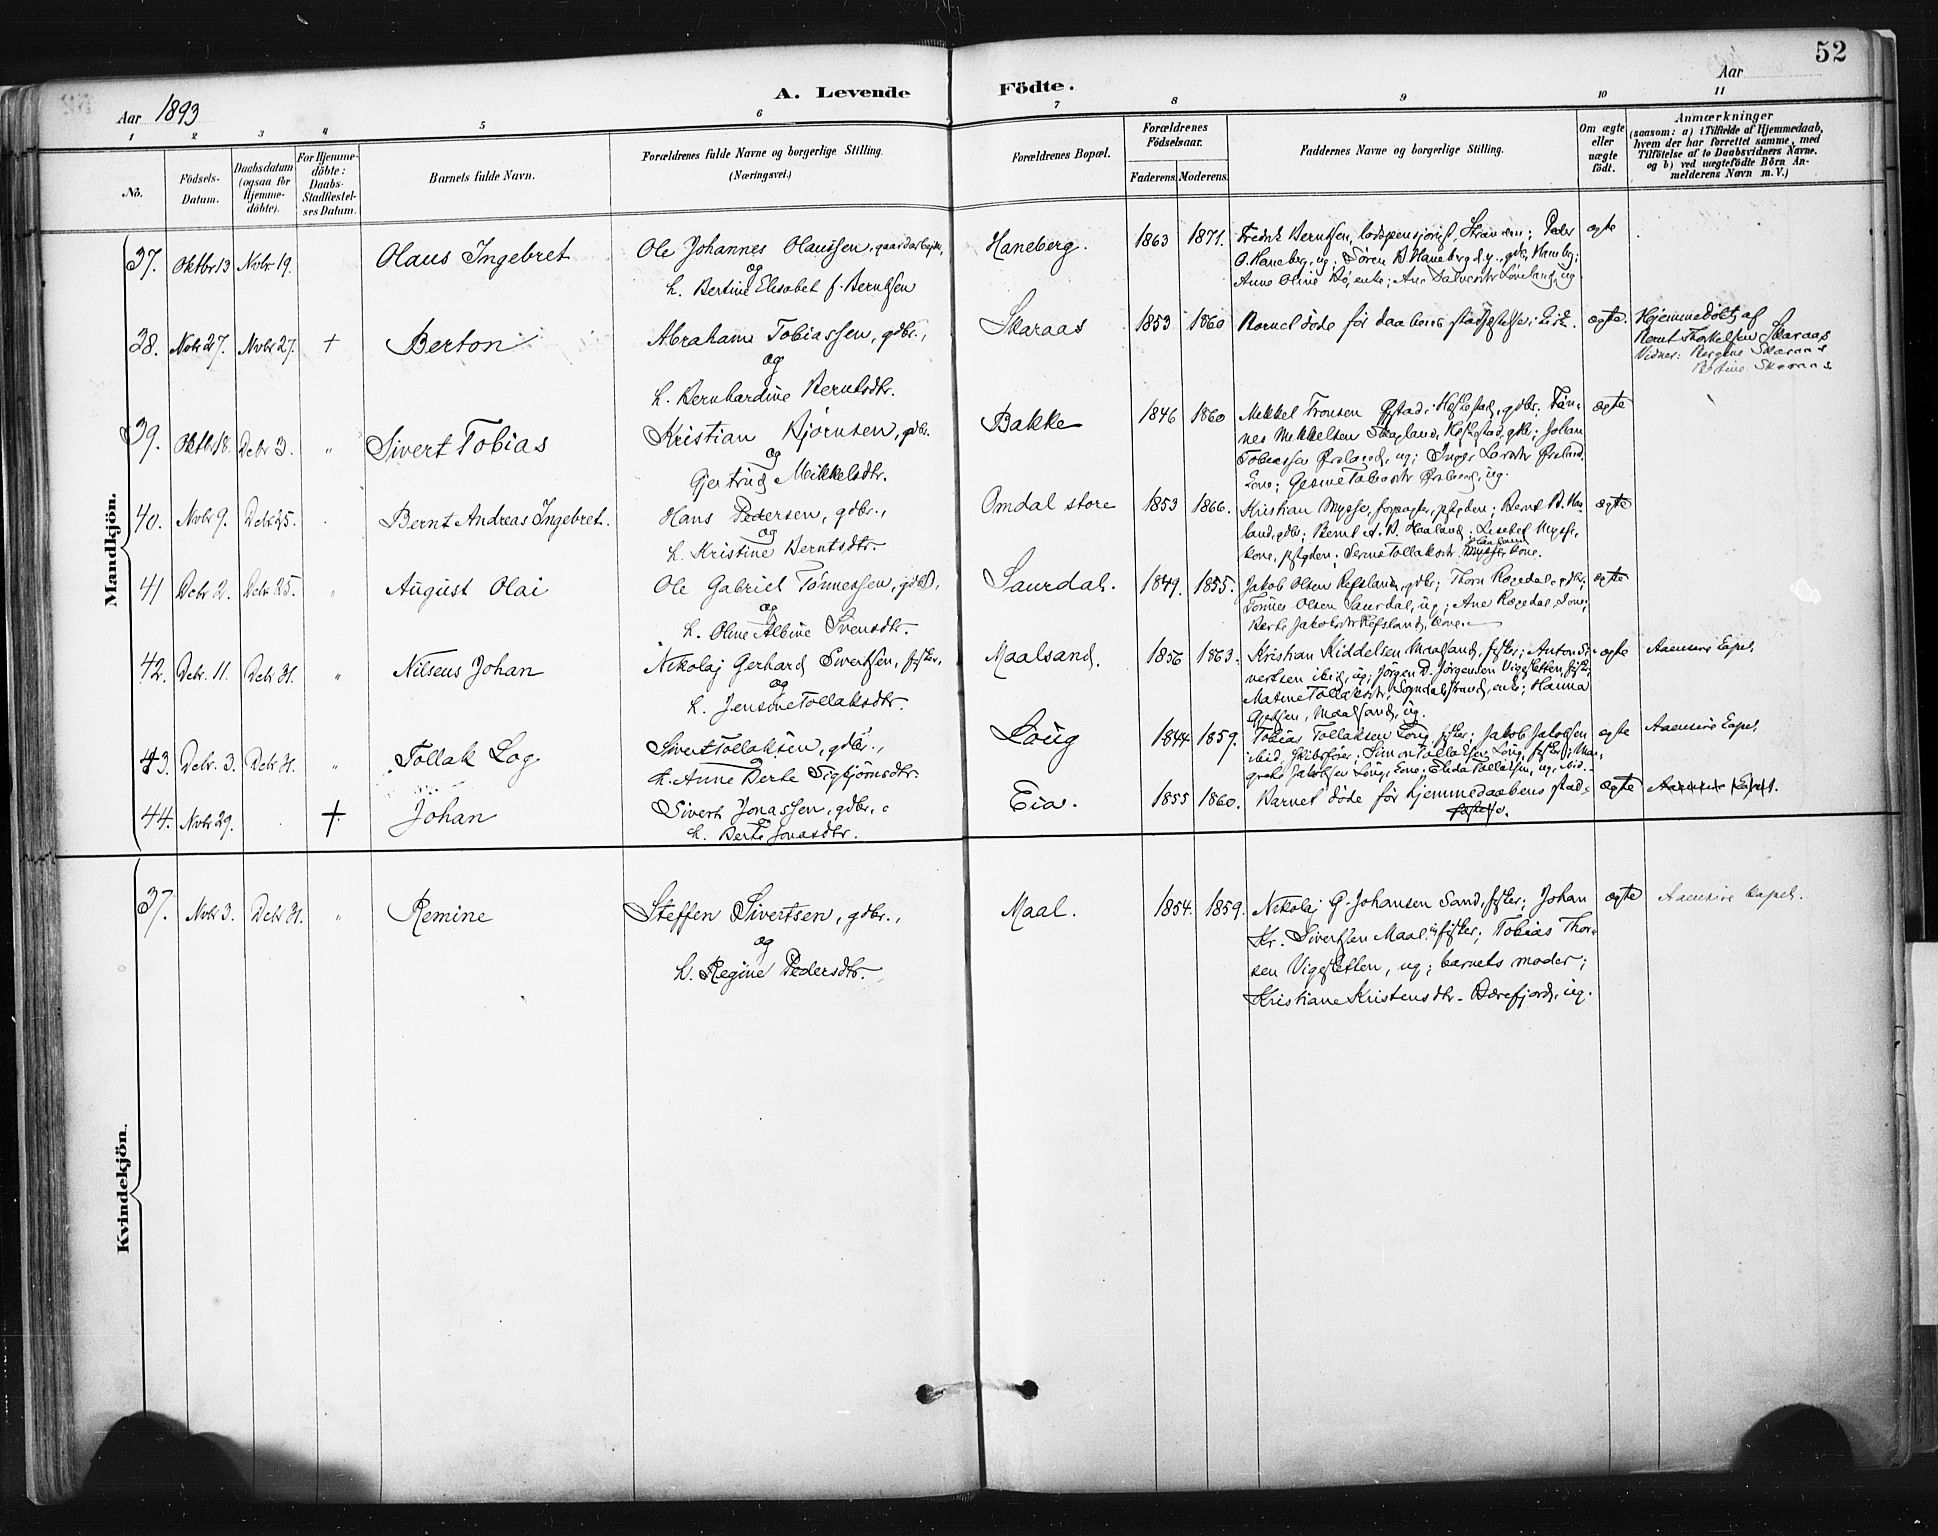 52
Aar 1893
A. Levende Födte.
Aar
1 2 3 4 5 6 7 8 9 10 11
No.
Födsels-Datum.
Daabsdatum (ogsaa for Hjemme-döbte).
For Hjemme-döbte: Daabs-Stadfæstel-ses Datum.
Barnets fulde Navn.
Forældrenes fulde Navne og borgerlige Stilling.
(Næringsvei.)
Forældrenes Bopæl.
Forældrenes Födselsaar.
Faderens. Moderens.
Faddernes Navne og borgerlige Stilling.
Om ægte eller uægte födt.
Anmærkninger
(saasom: a) i Tilfælde af Hjemmedaab,
hvem der har forrettet samme, med
Tilföielse af to Daabsvidners Navne.
og b) ved uægtefödte Börn An-
melderens Navn m. V.)
Mandkjön.
37. Oktbr 13 Novbr 19. Olaus Ingebret
Ole Johannes Olaussen, gaardarbeider,
og
h. Bertine Elisabet f. Berntsen
Haneberg. 1863 1871.
Fredrik Berntsen, Stranden; Peder
O. Haneberg, ug; Søren B. Haneberg
Anne Oline Bø, enke; Løveland, ug
ægte
38. Nvbr 27. Nvbr 27. + Berton
Abraham Tobiassen, gdbr.,
og
h. Bernhardine Berntsdtr.
Skaraas 1853 1860
Barnet døde før daabens stadfestelse
ægte
Hjemmedøbt af
Bernt Thorkelsen Skaraas
Vidner: Bergine Skaraas
Bertine Skaraas
39. Oktbr 18. Decbr 3. " Sivert Tobias
Kristian Bjørnsen, gdbr.
og
Gjertrud Mikkelsdtr.
Bakke 1846 1860
Mikkel Tronsen Hæskestad, gdbr; Tøn-
nes Mikkelsen Skagland, Hæskestad, gdbr; Johan
Tobiassen Øvsland, ug; Inger Larsdtr Øvsland
kone; Gesine Tobiasdtr Øvsland, ug.
ægte
40. Nvbr 9. Decbr 25. Bernt Andreas Ingebret.
Hans Pedersen, gdbr.,
og
h. Kristine Berntsdtr.
Omdal store 1853 1866.
Kristian Mysse, forpagter, pstgden; Bernt B. Haa-
land, gdbr; Bernt A. B. Haaland; Lisabet Mysse,
kone, pstgden; Serine Tollaksdtr Haaland kone.
ægte
41 Decbr 2. Decbr 25. " August Olai
Ole Gabriel Tønnessen, gdbr,
og
h. Oline Albine Svensdtr.
Saurdal. 1849. 1855.
Jakob Olsen Refsland, gdbr; Thorn Rægedal, gdbr;
Tønnes Olsen Saurdal, ug; Ane Rægedal, kone;
Berte Jakobsdtr Refsland, kone.
ægte
42. Decbr. 11. Decbr 31. " Nilseus Johan
Nikolaj Gerhard Sivertsen, fisker,
og
h. Jensine Tollaksdtr.
Maalsand. 1856 1863.
Kristian Kiddelsen Maalsand, fisker; Anton Si-
vertsen ibid, ug; Jørgen D. Jørgensen Vigesletten, fisker
Matine Tollaksdtr, Sogndalstrand, enke; Hanna
Maalsand, ug.
ægte Aaensire Kapel.
43. Decbr. 3. Decbr 31. " Tollak Log
Sivert Tollaksen, gdbr.,
og
h. Anne Berte Sigbjørnsdtr.
Loug 1844 1859.
Tobias Tollaksen Loug, fisker; Jakob Jakobsen
ibid, skibsfører; Simon Tollaksen Loug, fisker; Mar-
grete Jakobsen Loug, kone; Elida Tollaksen, ug, ibid.
ægte Aaensire Kapel.
44. Nvbr 29. + Johan
Sivert Jonassen, gdbr. o
h. Berte Jonasdtr.
Eia. 1855 1860.
Barnet døde før hjemmedaabens stad-
festelse.
ægte Aaensire Kapel.
Kvindekjön.
37. Nvbr 3. Decbr 31. " Remine
Steffen Sivertsen, gdbr.,
og
h. Regine Pedersdtr.
Maal. 1854. 1859.
Nikolaj G. Johansen Sand, fisker; Johan
Kr. Sivertsen Maal, fisker; Tobias Thor-
sen Vigesletten, ug; barnets moder;
Kristiane Kristensdtr. Bærefjord, ug.
ægte Aaensire Kapel.